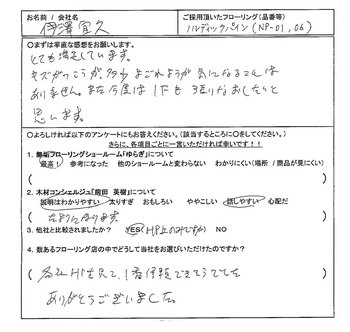 お名前 / 会社名
伊澤宜久
ご採用頂いたフローリング(品番等)
ノルディックパイン (NP-01, 06)
○まずは率直な感想をお願いします。
とても満足しています。
キズがつこうが、多少よごれようが気になることは
ありません。また今度は1Fも張りなおしたいと
思います。
○よろしければ以下のアンケートにもお答えください。(該当するところに○をしてください。)
さらに、各項目ごとに一言いただければ幸いです!!
1. 無垢フローリングショールーム「ゆらぎ」について
最高! 参考になった 他のショールームと変わらない わかりにくい(場所 / 商品が見にくい)
2. 木材コンシェルジュ「熊田 英樹」について
説明はわかりやすい 太りすぎ おもしろい ややこしい 話しやすい 心配だ
3. 他社と比較されましたか? YES(HP上のみですが) NO
4. 数あるフローリング店の中でどうして当社をお選びいただけたのですか?
各社HPを見て、1番信頼できそうでした
ありがとうございました。